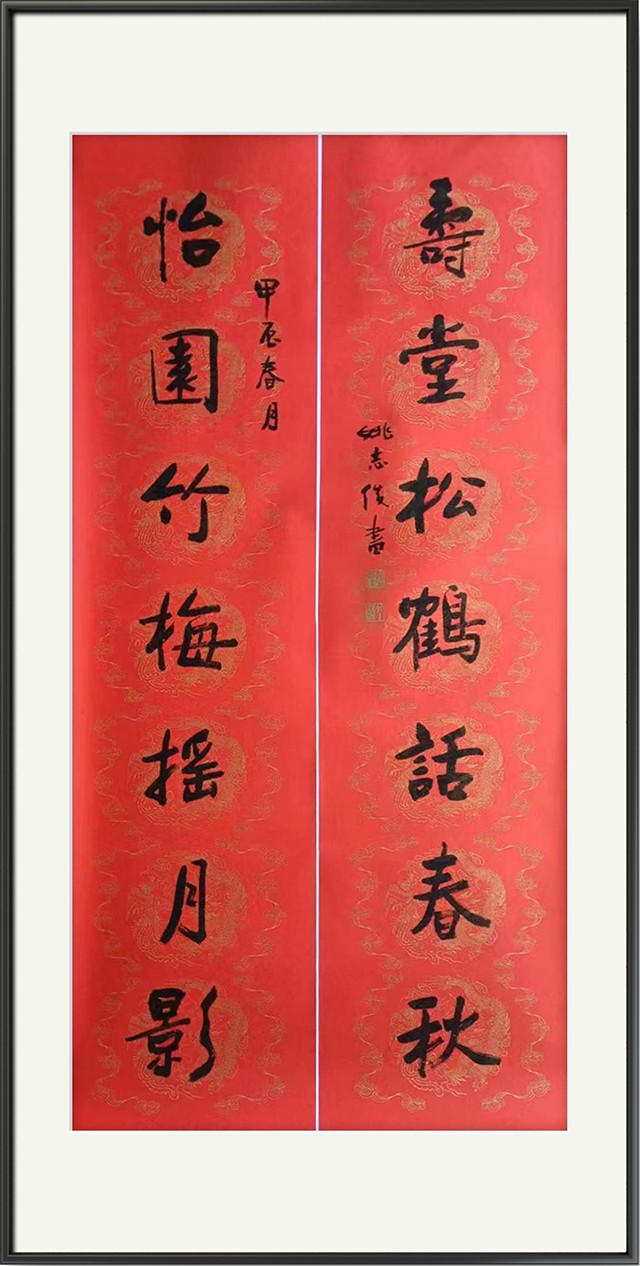 壽堂松鶴話春秋
姚志俊書
甲辰春月
怡園竹梅摇月影